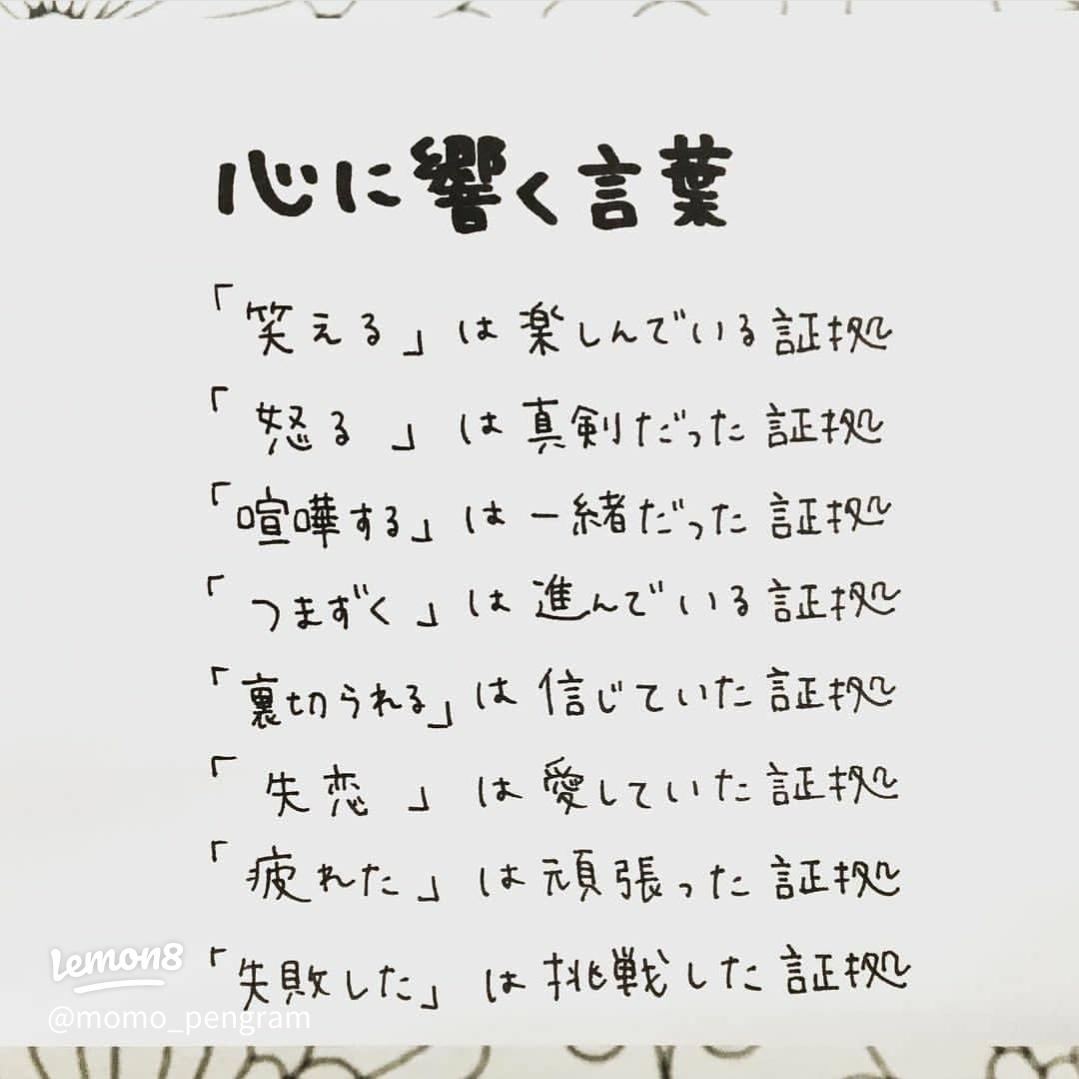 心に響く言葉
「笑える」は楽しんでいる証拠
「怒る」は真剣だった証拠
「喧嘩する」は一緒だった証拠
「つまずく」は進んでいる証拠
「裏切られる」は信じていた証拠
「失恋」は愛していた証拠
「疲れた」は頑張った証拠
「失敗した」は挑戦した証拠
Lemon8
@momo_pengram